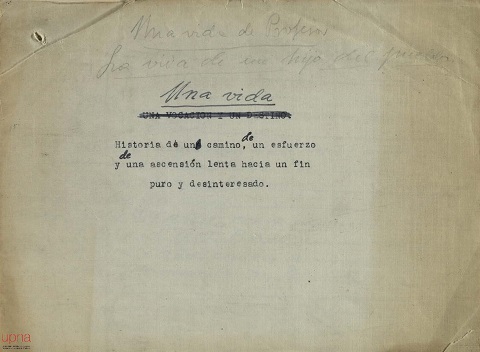 Una vida de Profesor
La vida de un hijo del pueblo
Una vida
UNA VOCACION Y UN DESTINO
Historia de un camino, de un esfuerzo
y de una ascensión lenta hacia un fin
puro y desinteresado.
upna